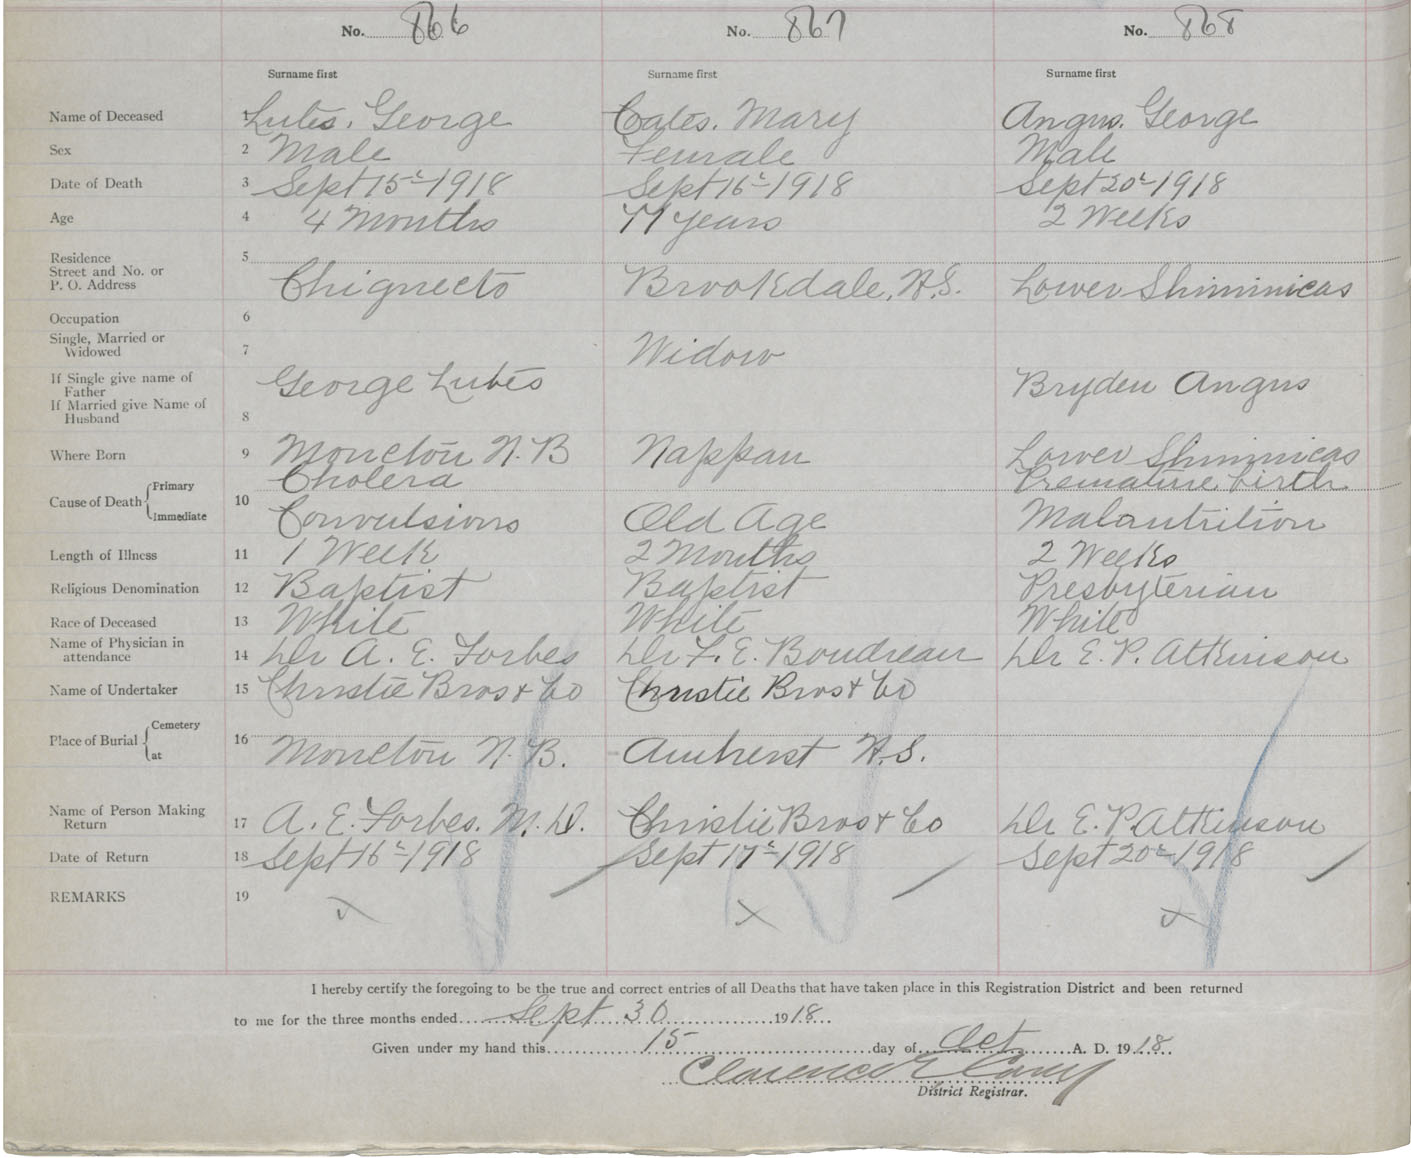 No. 866 No. 867 No. 868
Surname first Surname first Surname first
Name of Deceased 1 Lutes, George Cates, Mary Angus, George
Sex 2 Male Female Male
Date of Death 3 Sept 15th 1918 Sept 16th 1918 Sept 20th 1918
Age 4 4 Months 77 years 2 Weeks
Residence 5
Street and No. or
P. O. Address Chignecto Brookdale, N.S. Lower Shiminicas
Occupation 6
Single, Married or
Widowed 7 Widow
If Single give name of
Father George Lutes Bryden Angus
If Married give Name of
Husband 8
Where Born 9 Moncton N. B Nappan Lower Shiminicas
Cause of Death Primary 10 Cholera Premature birth
Immediate Convulsions Old Age Malanutrition
Length of Illness 11 1 Week 2 Months 2 Weeks
Religious Denomination 12 Baptist Baptist Presbyterian
Race of Deceased 13 White White White
Name of Physician in
attendance 14 Dr A. E. Forbes Dr F. E. Boudreau Dr E. P. Atkinson
Name of Undertaker 15 Christie Bros & Co Christie Bros & Co
Place of Burial Cemetery 16
at Moncton N. B. Amherst N.S.
Name of Person Making
Return 17 A. E. Forbes. M. D. Christie Bros & Co Dr E. P. Atkinson
Date of Return 18 Sept 16th 1918 Sept 17th 1918 Sept 20th 1918
REMARKS 19
I hereby certify the foregoing to be the true and correct entries of all Deaths that have taken place in this Registration District and been returned
to me for the three months ended Sept 30 1918
Given under my hand this 15 day of Oct A. D. 1918
Clarence E
District Registrar.